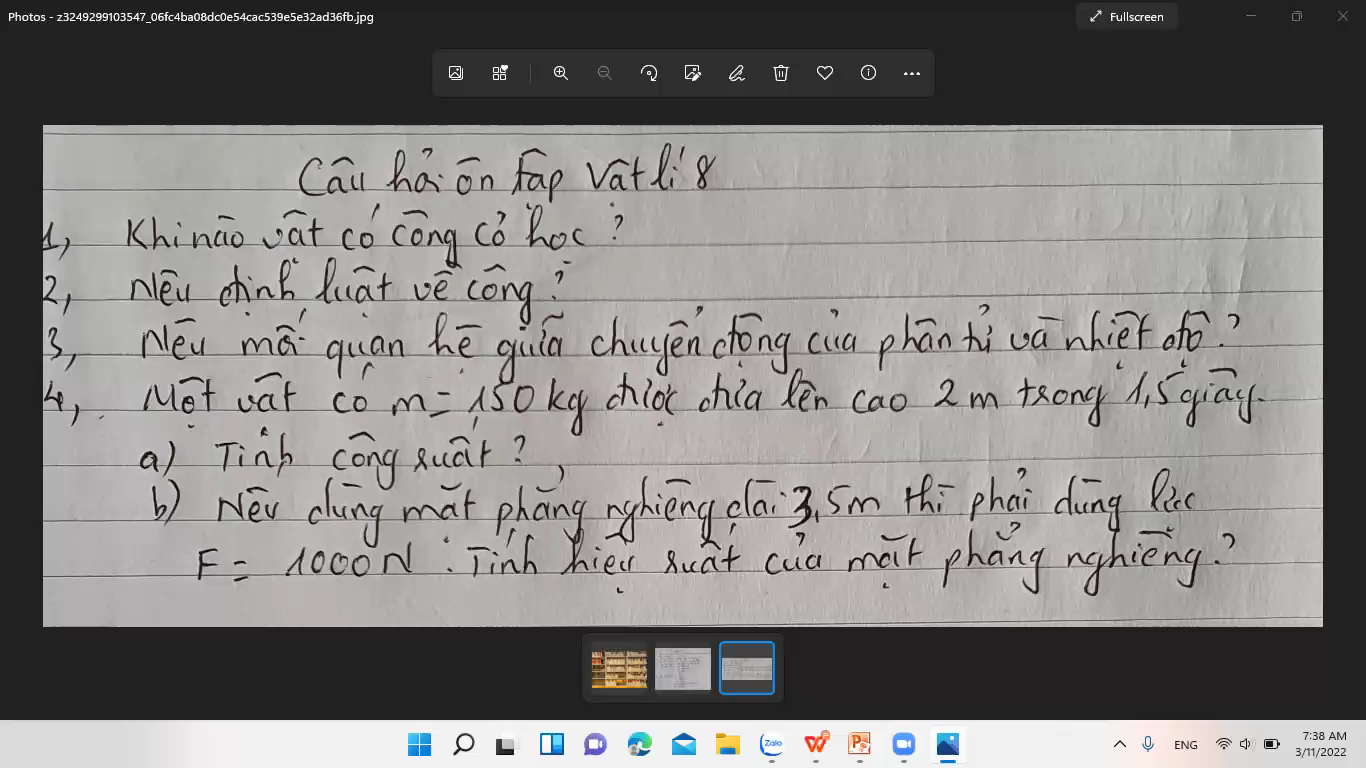 Photos - z3249299103547_06fc4ba08dc0e54cac539e5e32ad36fb.jpg
Fullscreen
Câu hỏi ôn tập Vật lí 8
1, Khi nào vật có công cơ học ?
2, Nêu định luật về công ?
3, Nêu mối quan hệ giữa chuyển động của phân tử và nhiệt độ ?
4, Một vật có m = 150 kg được đưa lên cao 2 m trong 1,5 giây.
a) Tính công suất ?
b) Nếu dùng mặt phẳng nghiêng dài 3,5m thì phải dùng lực
F = 1000N . Tính hiệu suất của mặt phẳng nghiêng ?
Zalo
ENG
7:38 AM
3/11/2022